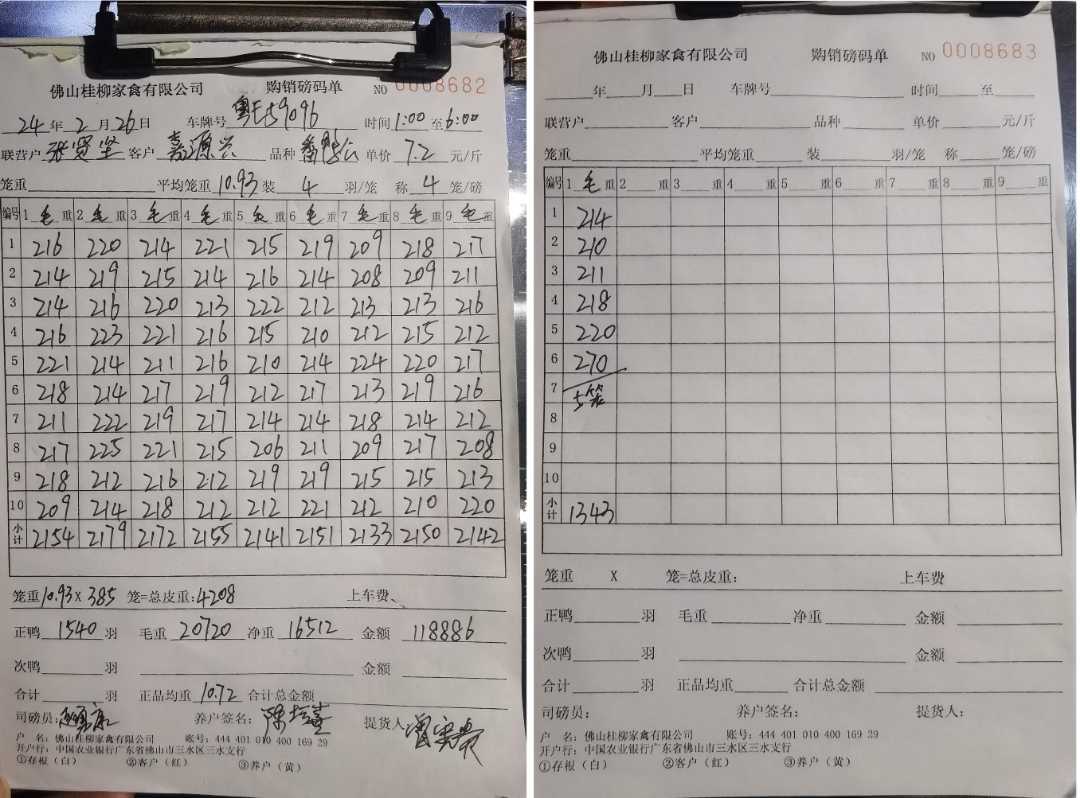 佛山桂柳家禽有限公司 购销磅码单 NO 0008682
24年2月26日 车牌号粤E59096 时间1:00至6:00
联营户张贤坚 客户嘉源兴 品种番鸭公 单价7.2元/斤
笼重 平均笼重10.93装4羽/笼 称4笼/磅
编号 1毛重 2毛重 3毛重 4毛重 5毛重 6毛重 7毛重 8毛重 9毛重
1 216 220 214 221 215 219 209 218 217
2 214 219 215 214 216 214 208 209 211
3 214 216 220 213 222 212 213 213 216
4 216 223 221 216 215 210 212 215 212
5 221 214 211 216 210 214 224 220 217
6 218 214 217 219 212 217 213 219 216
7 211 222 219 217 214 214 218 214 212
8 217 225 221 215 206 211 209 217 208
9 218 212 216 212 219 219 215 215 213
10 209 214 218 212 212 221 212 210 220
小计 2154 2179 2172 2155 2141 2151 2133 2150 2142
笼重10.93X385笼=总皮重:4208 上车费、
正鸭1540羽 毛重20720净重16512 金额118886
次鸭 羽 金额
合计 羽 正品均重10.72 合计总金额
司磅员: 养户签名: 提货人
户 名: 佛山桂柳家禽有限公司 账号: 444 401 010 400 169 29
开户行: 中国农业银行广东省佛山市三水区三水支行
①存根(白) ②客户(红) ③养户(黄)
佛山桂柳家禽有限公司 购销磅码单 NO 0008683
年 月 日 车牌号 时间 至
联营户 客户 品种 单价 元/斤
笼重 平均笼重 装 羽/笼 称 笼/磅
编号 1毛重 2 重 3 重 4 重 5 重 6 重 7 重 8 重 9 重
1 214
2 210
3 211
4 218
5 220
6 270
7 5笼
8
9
10
小计 1343
笼重 X 笼=总皮重: 上车费
正鸭 羽 毛重 净重 金额
次鸭 羽 金额
合计 羽 正品均重 合计总金额
司磅员: 养户签名: 提货人:
户 名: 佛山桂柳家禽有限公司 账号: 444 401 010 400 169 29
开户行: 中国农业银行广东省佛山市三水区三水支行
①存根(白) ②客户(红) ③养户(黄)